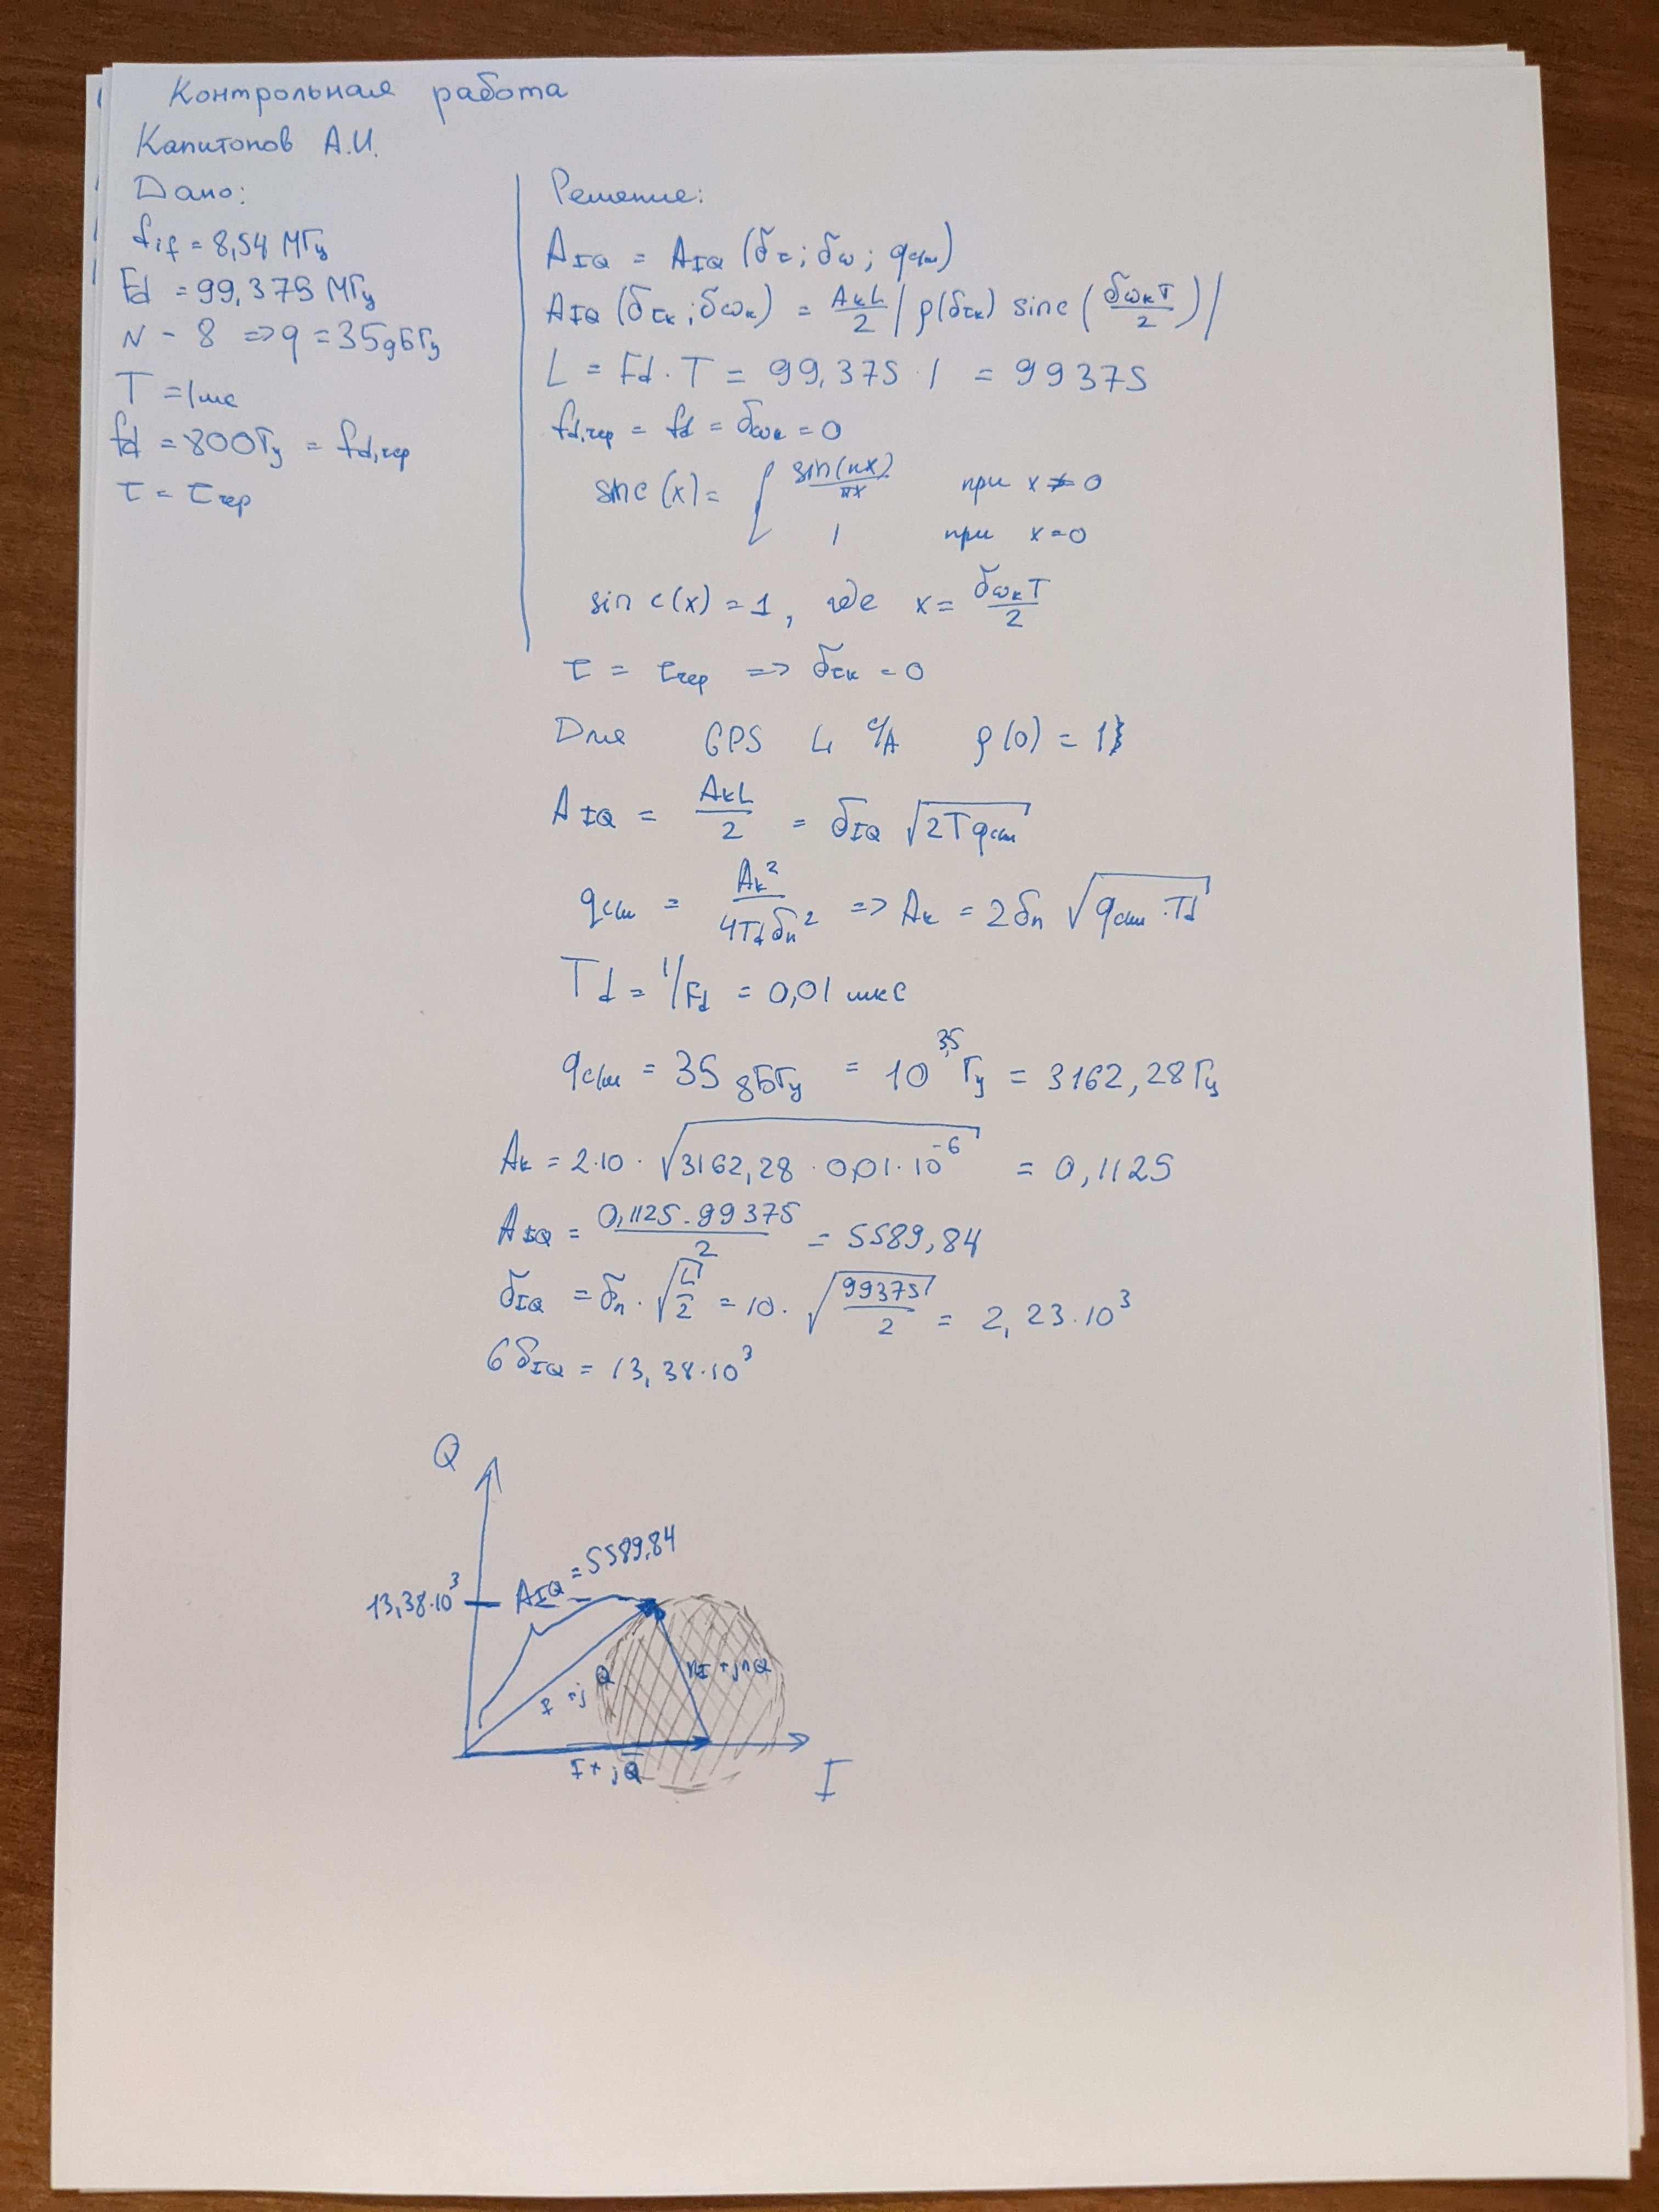 Контрольная работа
Капитонов А.И.
Дано:
f_if = 8,54 МГц
Fd = 99,375 МГц
N - 8 => q = 35 дБГц
T = 1мс
fd = 800Гц = fd,чер
τ = τчер
Решение:
A_IQ = A_IQ (δτ; δω; qс/ш)
A_IQ (δτк; δωк) = AкL/2 | ρ(δτк) sinc (δωкT/2) |
L = Fd · T = 99,375 · 1 = 99375
fd,чер = fd = δωк = 0
sinc (x) = { sin(πx)/πx при x ≠ 0
1 при x = 0
sinc(x) = 1, где x = δωкT/2
τ = τчер => δτк = 0
Для GPS L1 C/A ρ(0) = 1
A_IQ = AкL/2 = δ_IQ √(2Tqс/ш)
qс/ш = Aк²/4Tdδn² => Aк = 2δn √(qс/ш · Td)
Td = 1/Fd = 0,01 мкс
qс/ш = 35 дБГц = 10^3,5 Гц = 3162,28 Гц
Aк = 2·10 · √(3162,28 · 0,01 · 10⁻⁶) = 0,1125
A_IQ = 0,1125·99375/2 = 5589,84
δ_IQ = δn · √(L/2) = 10 · √(99375/2) = 2,23·10³
6δ_IQ = 13,38·10³
Q
A_IQ = 5589,84
13,38·10³
I + jQ
n_I + jn_Q
I + jQ̄
I